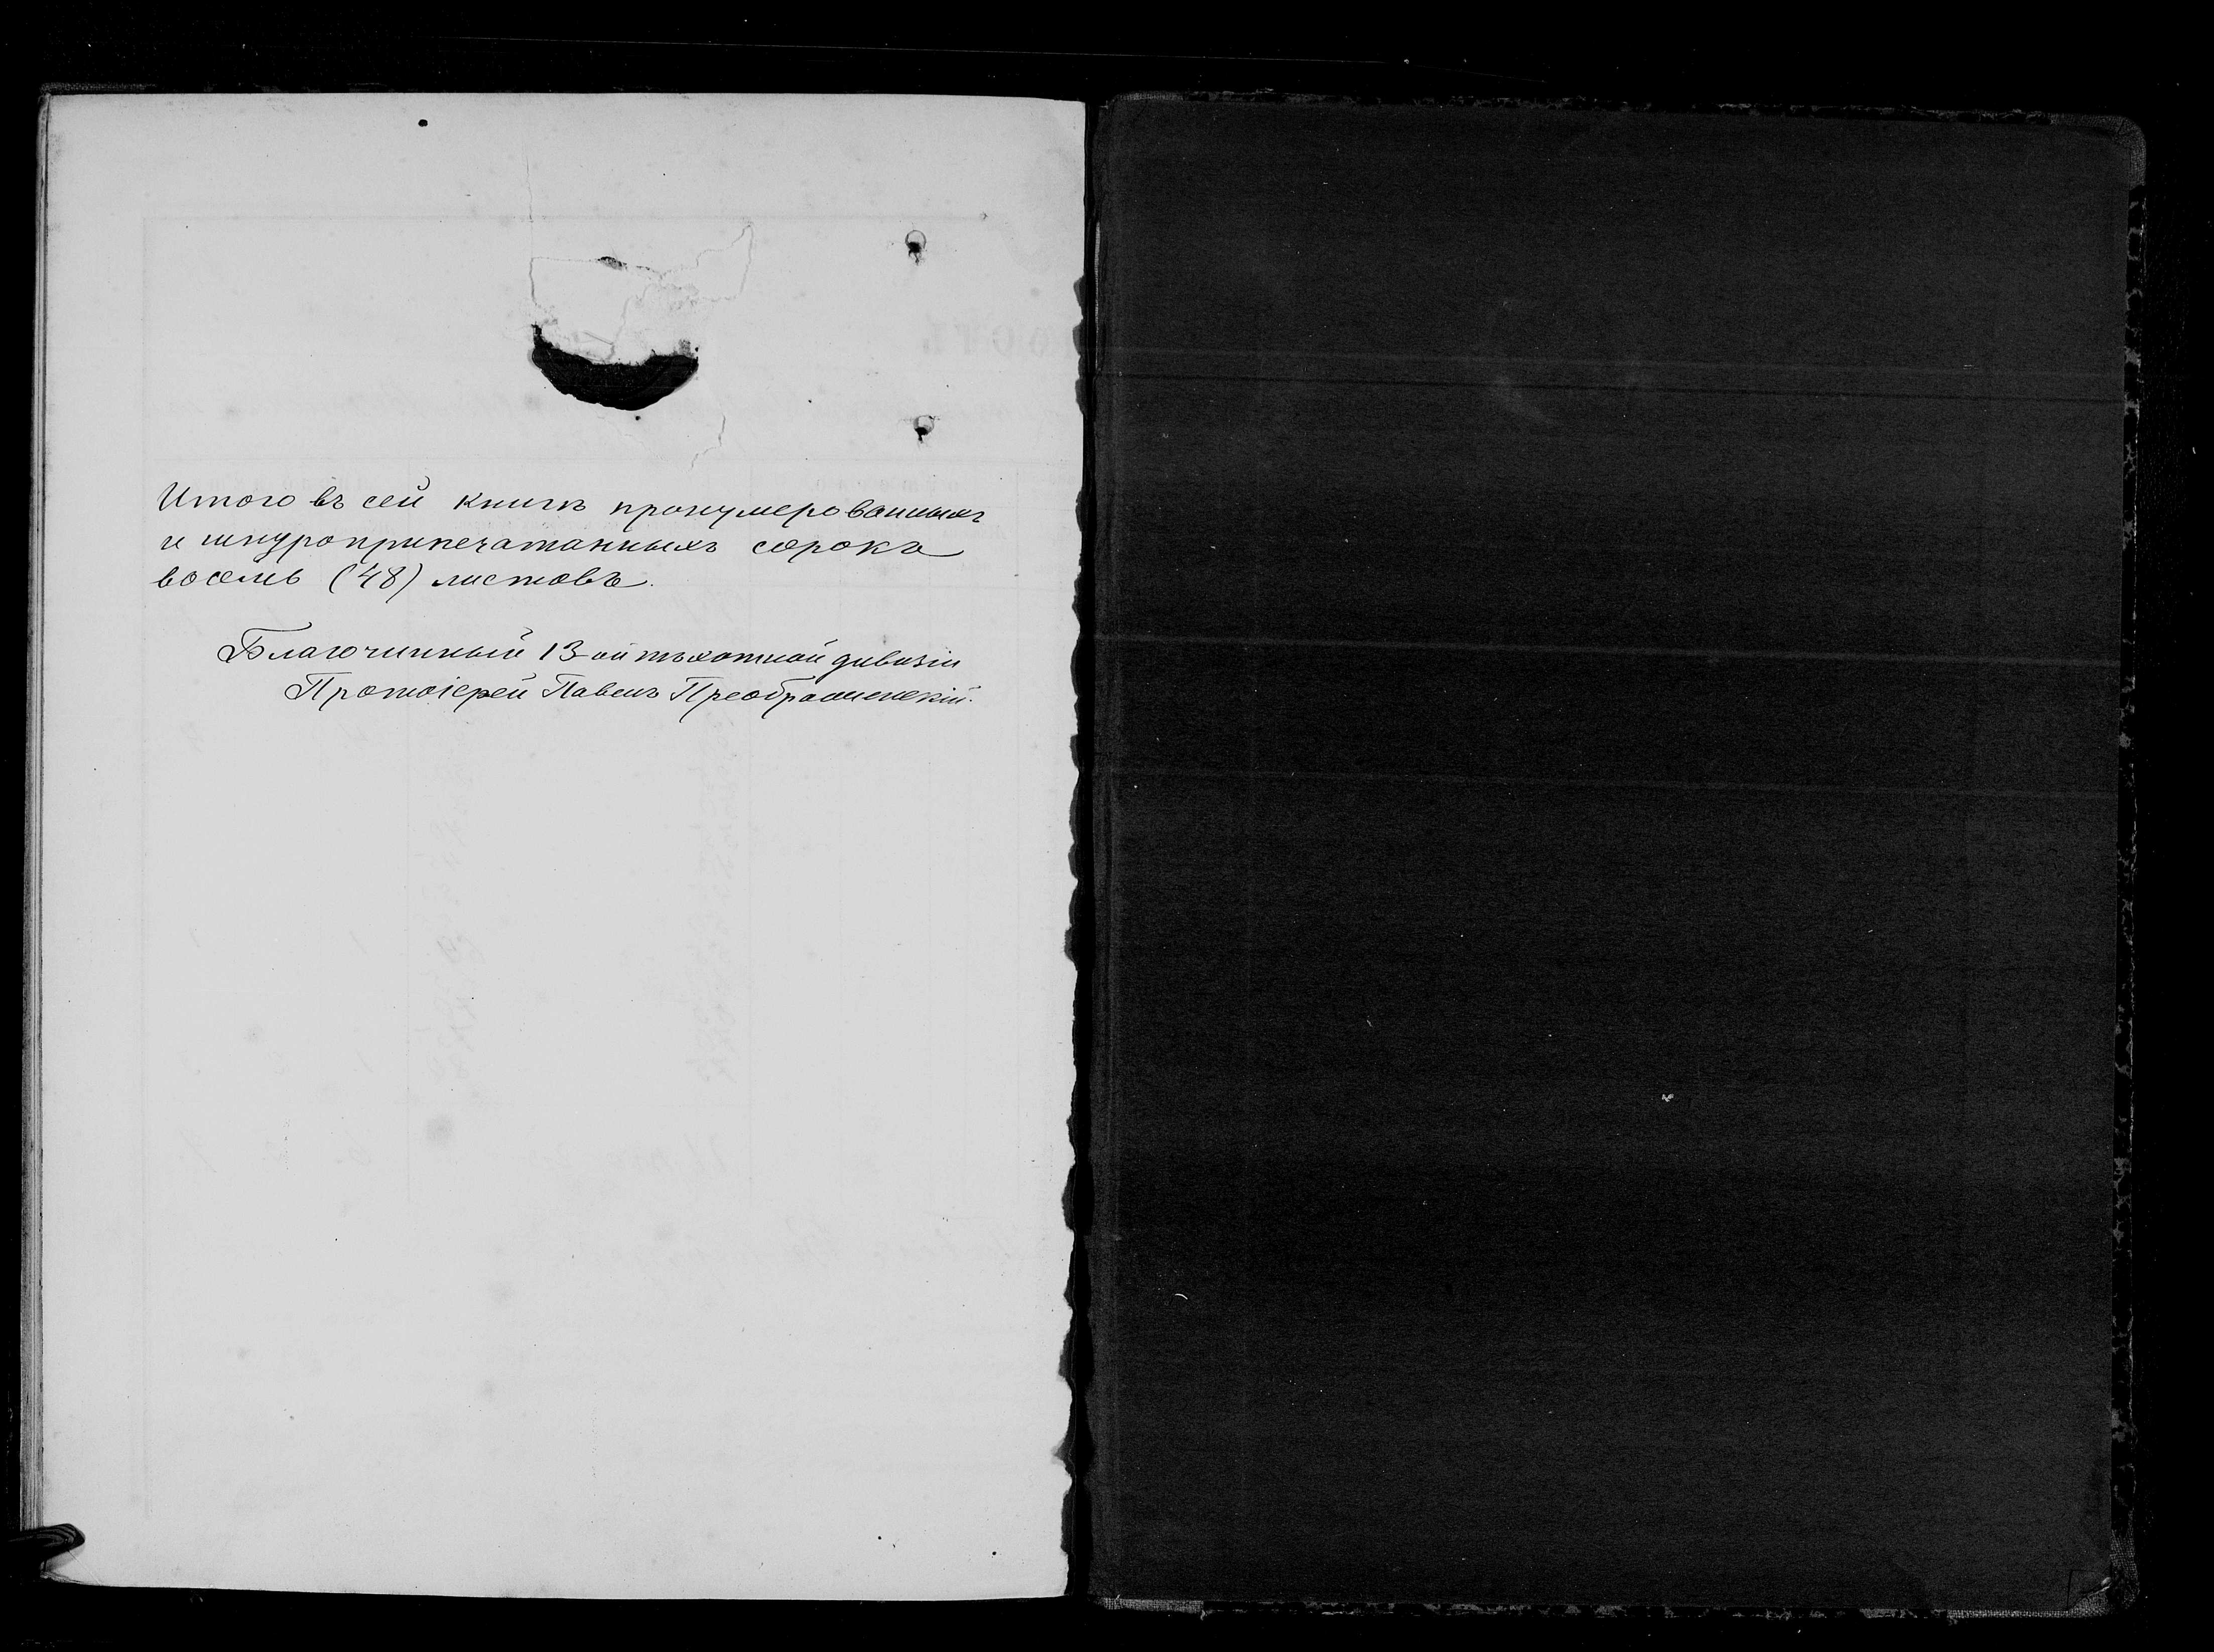 Итого въ сей книгѣ пронумерованныхъ
и шнуроприпечатанныхъ сорокъ
восемь (48) листовъ.
Благочинный 13-ой пѣхотной дивизіи
Протоіерей Павелъ Преображенскій.